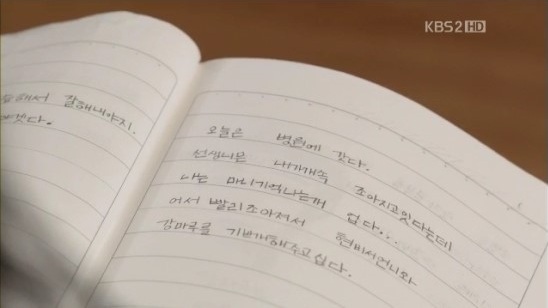 KBS2 HD
해서 잘해내야지.
밧다.
오늘은 병원에 갓다.
선생니믄 내가개속 조아지고잇다는데
나는 마니기억나는개 업다...
어서 빨리조아져서 현비서언니와
강마루를 기쁘개해주고십다.